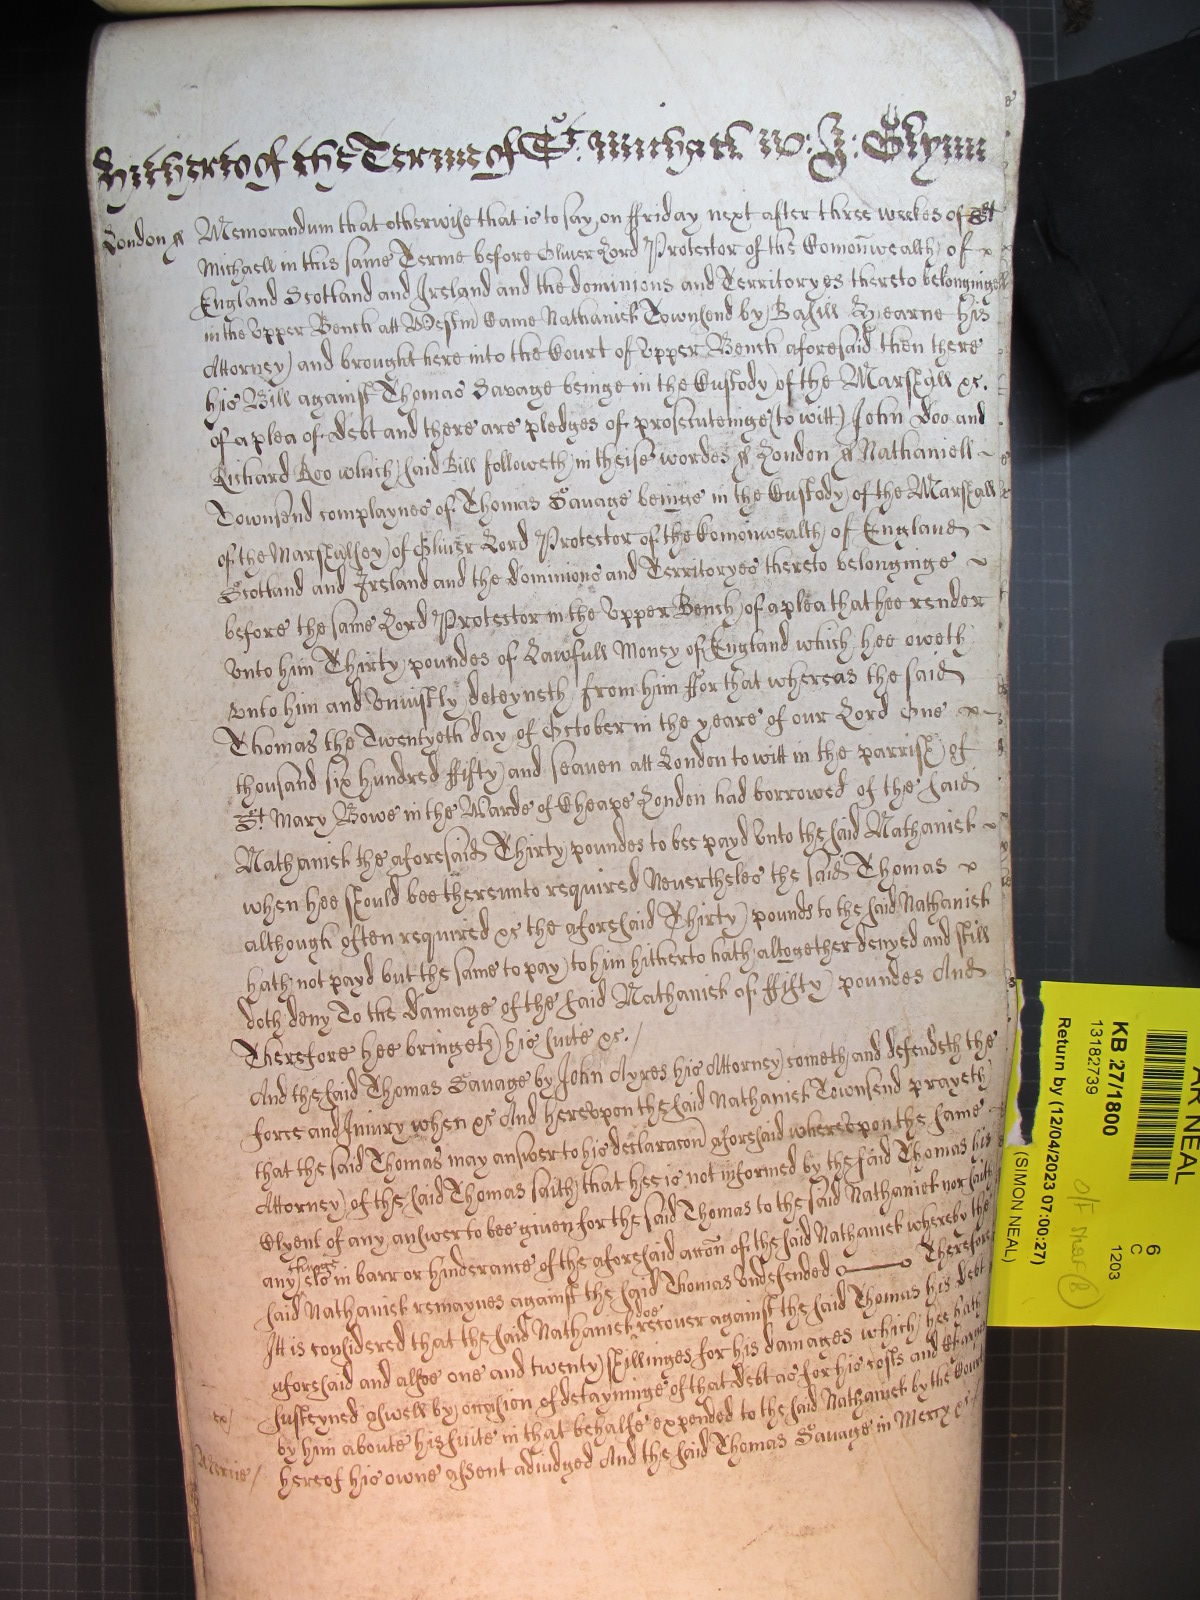 Hitherto of the Terme of St. Michaell W: J: Glynn
London ss Memorandum that otherwise that is to say, on ffriday next after three weekes of St
Michaell in this same Terme before Oliver Lord Protector of the Comonwealth of
England Scotland and Ireland and the dominions and Territoryes thereto belonginge
in the Upper Bench att Westm Came Nathaniell Townsend by Basill Hearne his
Attorney and brought here into the Court of Upper Bench aforesaid then there
his Bill against Thomas Savage beinge in the Custody of the Marshall &c.
of a plea of debt and there are pledges of prosecuteinge (to witt) John Doo and
Richard Roo which said Bill followeth in theise wordes ss London ss Nathaniell
Townsend complaynes of Thomas Savage beinge in the Custody of the Marshall
of the Marshalsey of Oliver Lord Protector of the Comonwealth of England
Scotland and Ireland and the dominions and Territoryes thereto belonginge
before the same Lord Protector in the Upper Bench of a plea that hee render
unto him Thirty poundes of Lawfull Money of England which hee oweth
unto him and uniustly deteyneth from him ffor that whereas the said
Thomas the Twentyeth day of October in the yeare of our Lord One
thousand six hundred ffifty and seaven att London to witt in the parrish of
St. Mary Bowe in the Warde of Cheape London had borrowed of the said
Nathaniell the aforesaid Thirty poundes to bee payd unto the said Nathaniell
when hee should bee thereunto required Neverthelees the said Thomas
although often required &c the aforesaid Thirty pounds to the said Nathaniell
hath not payd but the same to pay to him hitherto hath altogether denyed and still
doth deny To the damage of the said Nathaniell of ffifty poundes And
Therefore hee bringeth his suite &c./
And the said Thomas Savage by John Ayres his Attorney cometh and defendeth the
force and Iniury when &c And hereupon the said Nathaniell Townsend prayeth
that the said Thomas may answer to his declaracon aforesaid whereupon the same
Attorney of the said Thomas saith that hee is not informed by the said Thomas his
Clyent of any answer to bee given for the said Thomas to the said Nathaniell nor saith
any thinge els in barr or hinderance of the aforesaid accon of the said Nathaniell whereby the
said Nathaniell remaynes against the said Thomas undefended Therefore
Itt is considered that the said Nathaniell doe recover against the said Thomas his debt
aforesaid and alsoe one and twenty shillinges for his damages which hee hath
susteyned aswell by occasion of detayninge of that debt as for his costs and Charges
ex/ by him aboute his suite in that behalfe expended to the said Nathaniell by the Court
Mercie/ hereof his owne assent adiudged And the said Thomas Savage in Mercy &c./
AR NEAL
6
C
1203
KB 27/1800
13182739
Return by (12/04/2023 07:00:27)
(SIMON NEAL)